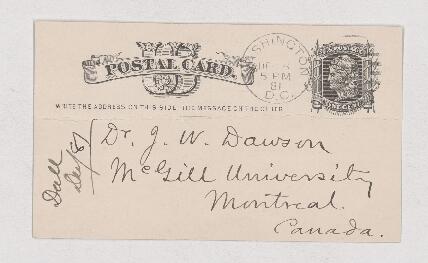 POSTAL CARD.
WASHINGTON
5 PM
81
D.C.
WRITE THE ADDRESS ON THIS SIDE - THE MESSAGE ON THE OTHER
Dr. J. W. Dawson
McGill University
Montreal.
Canada.
Dall